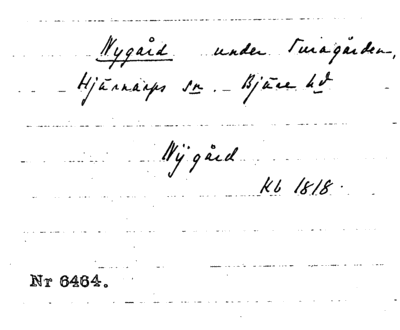 Nygård under Turagården,
Hjärnarps sn. Bjäre hd
Nÿgård
Kb 1818.
Nr 6464.